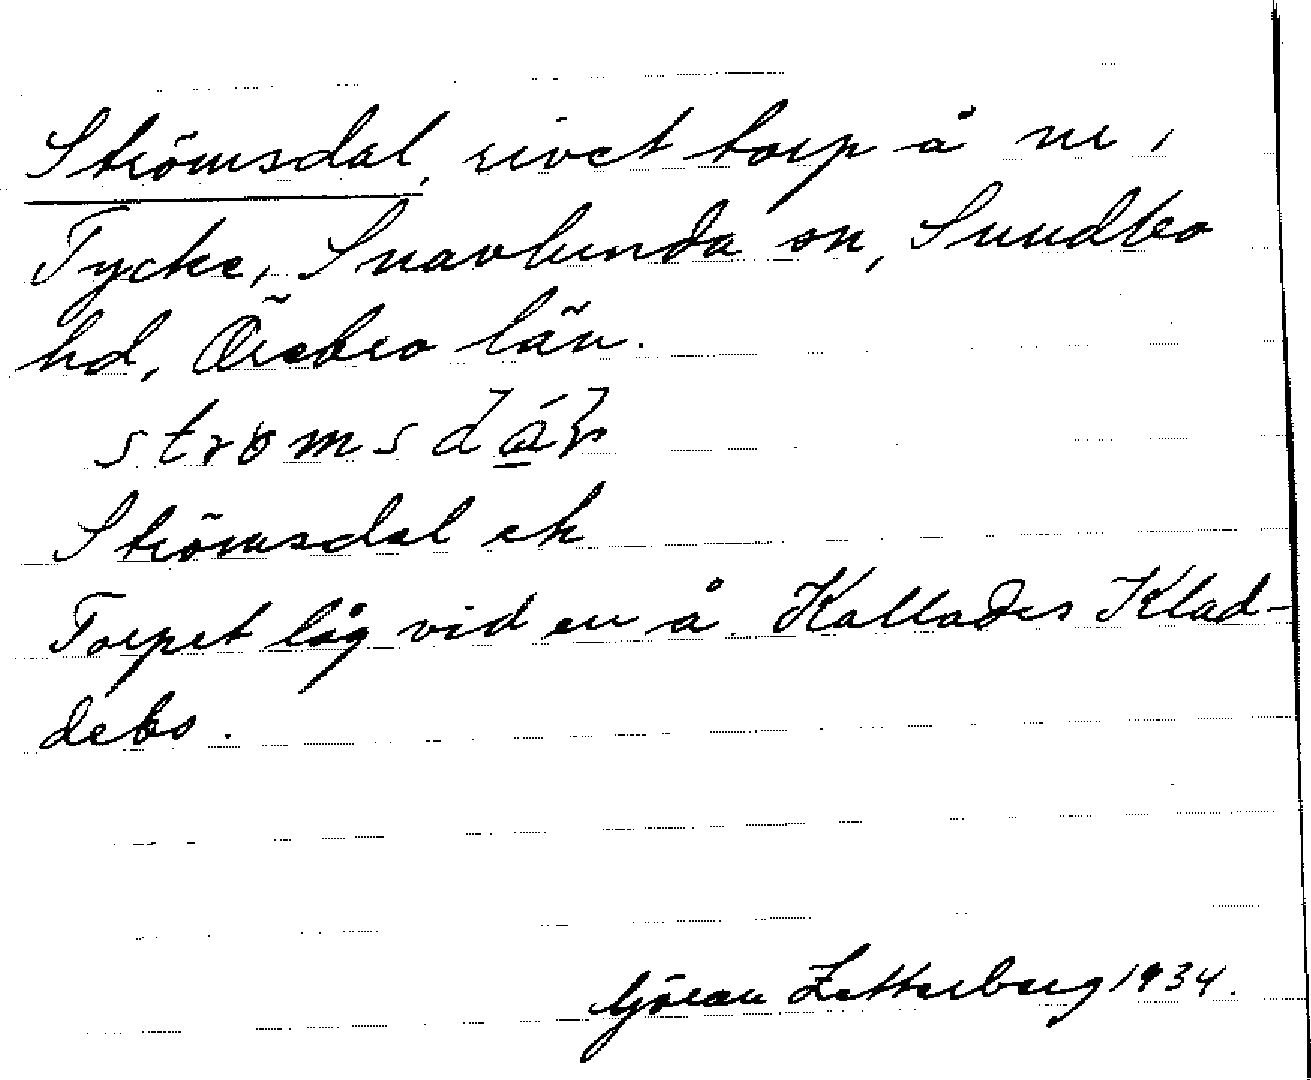 Strömsdal, rivet torp å nr 1
Tycke, Snavlunda sn, Sundbo
hd, Örebro län.
strömsdáɽ
Strömsdal ek
Torpet låg vid en å. Kallades Klad-
debo.
Göran Zetterberg 1934.